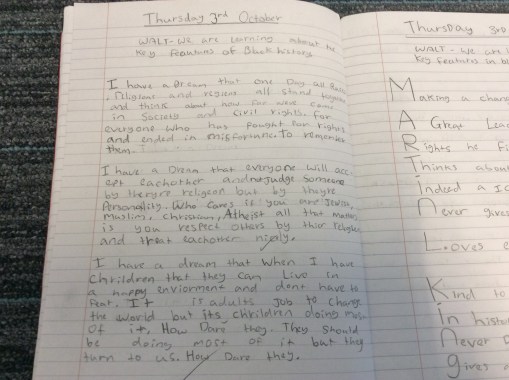 Thursday 3rd October
WALT- We are learning about the
Key Features of Black history
I have a Dream that one Day all Races
, religions and regiens all stand together
and think about how far weve come
in Society and Civil rights. For
everyone who has fought for rights
and ended in misfortune. To remember
them.
I have a Dream that everyone will acc-
ept eachother and not judge someone
by thergre religeon but by thayre
Personallity. Who Cares if you are Jewish,
Muslim, Christian, Atheist all that matters
is you respect others by thier religion
and treat eachother nicely.
I have a dream that when I have
Chrildren that they can Live in
a happy enviorment and dont have to
Fear. It is adults Job to change
the world but its chrildren doing most
of it, How Dare they. They should
be doing most of it but they
turn to us. How Dare they.
Thursday 3rd
WALT - We are l
Key features in bl
Making a chang
A Great Lea
Rights he Fi
Thinks about
Indeed a Ic
Never gives
Loves e
Kind to
in histor
Never D
gives a